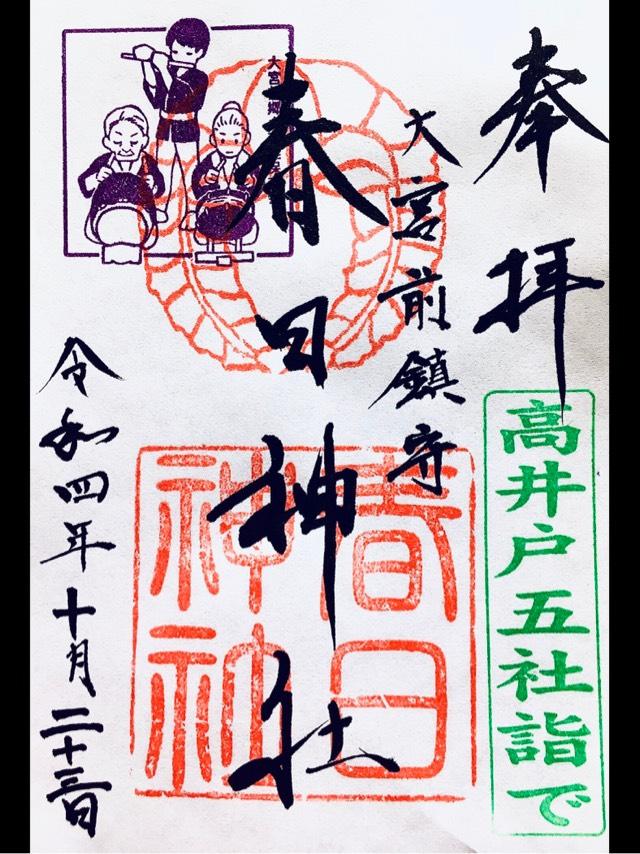 奉拝
高井戸五社詣で
大宮前鎮守
春日神社
春日
神社
令和四年十月二十三日